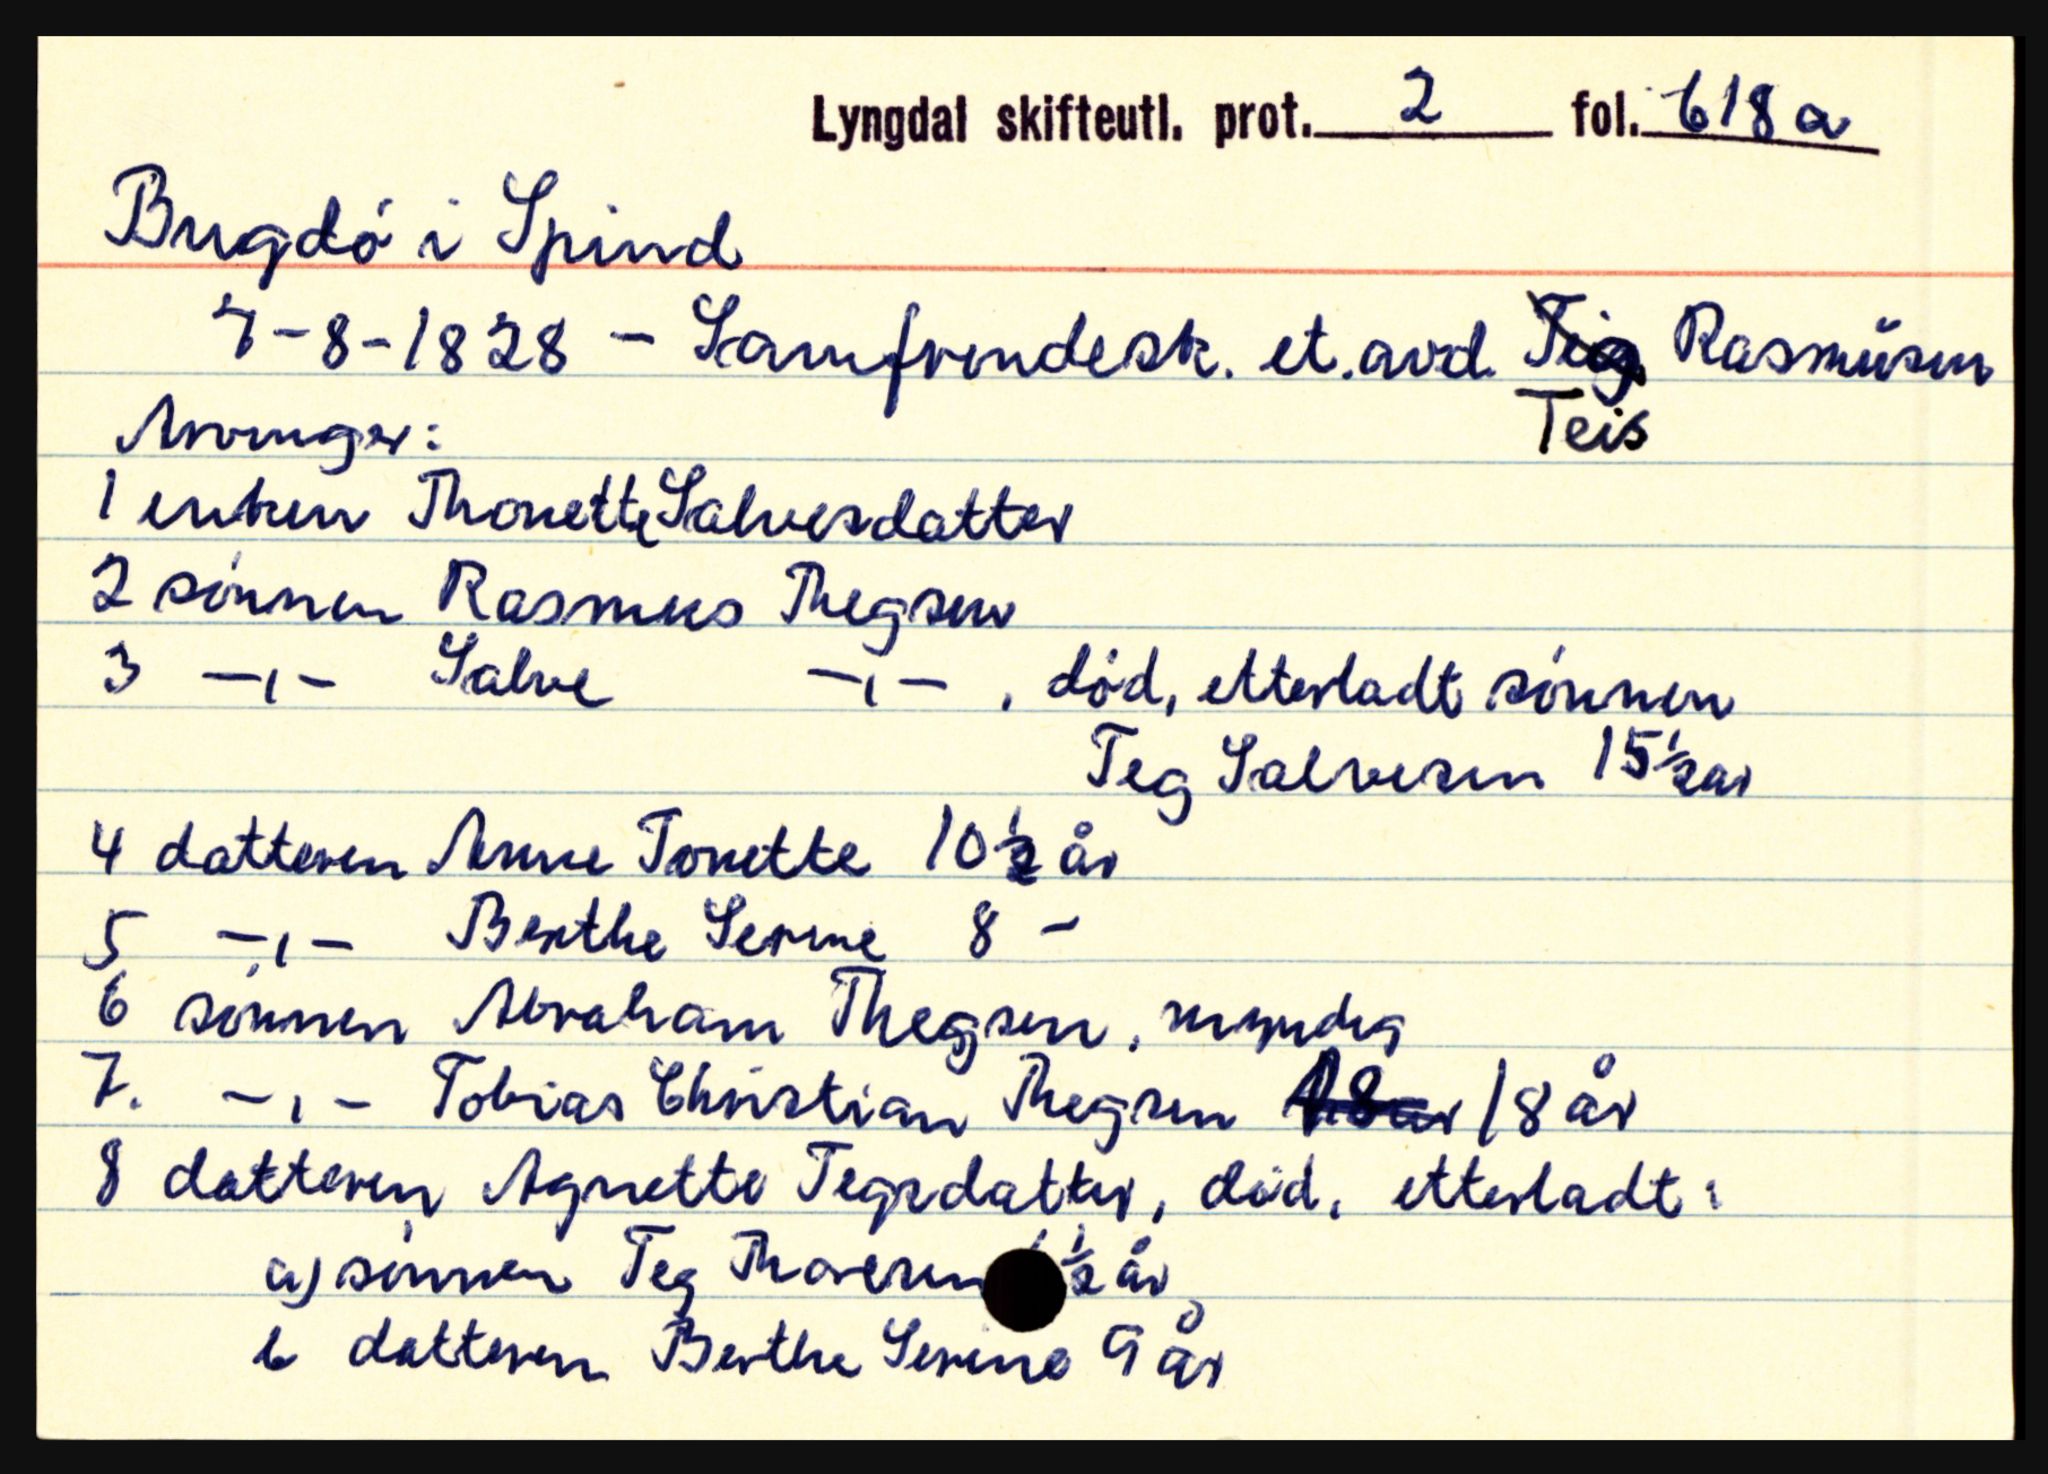 Lyngdal skifteutl. prot. 2 fol. 618a
Bugdó i Spind
7-8-1828 - Samfrendesk. et. avd. Teg Rasmusen
Teis
Arvinger:
1 enken Thonette Salvesdatter
2 sønnen Rasmus Thegsen
3 -,- Salve -,- , død, etterladt sønnen
Teg Salvesen 15 1/2 år
4 datteren Anne Tonette 10 1/2 år
5 -,- Berthe Serine 8 -
6 sønnen Abraham Thegsen, myndig
7. -,- Tobias Christian Thegsen 18 år 18 år
8 datteren Agnette Tegsdatter, død, etterladt:
a) sønnen Teg Thoresen 1/2 år
b datteren Berthe Serine 9 år